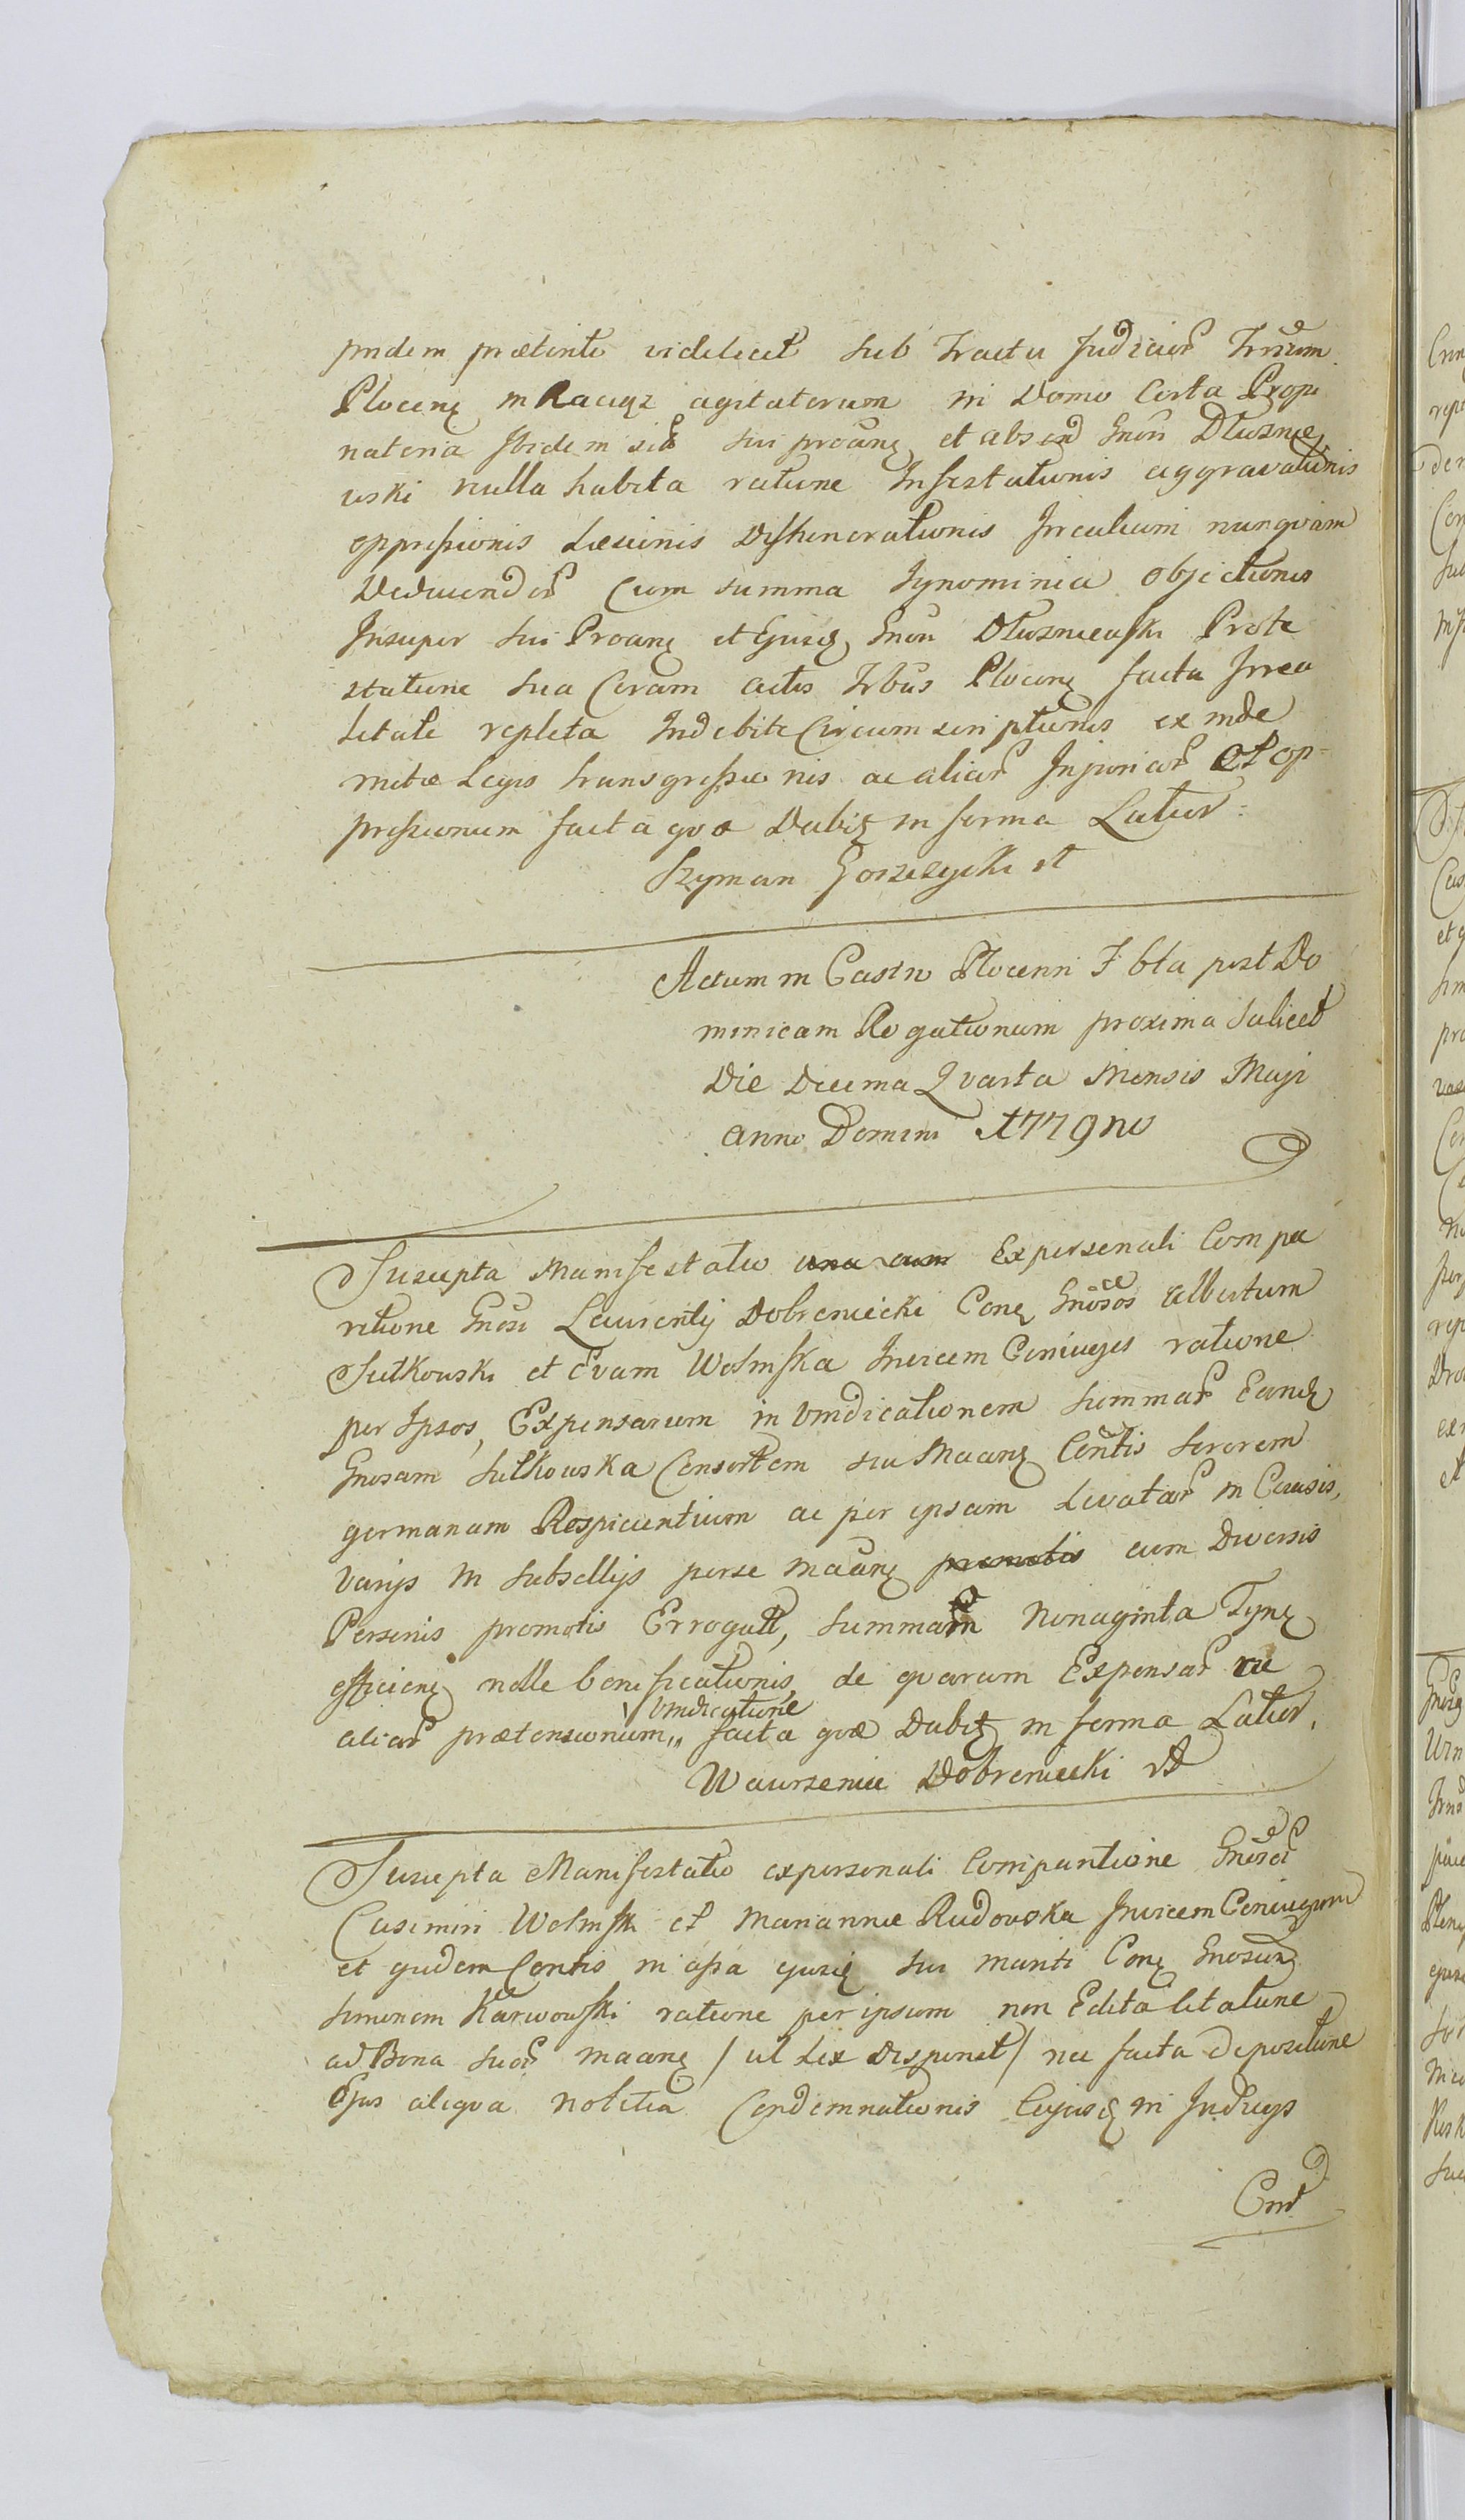 pridem præterito videlicet sub Tractu Judicior Trrium
Plocen in Raciąz agitatorum in Domo Certa Propi
natoria Ibidem sita sui proane et absend Gnosi Dłuzniew
uski nulla habita ratione Infestationis aggravationis
oppressionis Læsionis Dishonorationis Irrealium nunquam
Deducendor Cum summa Ignominia objectionis
Insuper sui Proane et Ejusd Gnosi Dłuzniewski Prote
statione sua Coram actis Trbus Plocen facta Irrea
litate repleta Indebite Circumscriptionis exinde
mitæ Legis transgressionis ac aliar Injuriar et op=
pressionum facta quæ Dabit in forma Latior:
Szyman Goszczycki st
Actum in Castro Plocenn F bta post Do
minicam Rogationum proxima scilicet
Die Decima Quarta Mensis Maji
anno Domini 1779no
Suscepta Manifestatio una cum Ex personali Compa
ritione Gnosi Laurentij Dobreniecki Cone Gnosos Albertum
Sutkouski et Evam Wolinska Invicem Coniuges ratione
per Ipsos, Expensarum in Vindicationem summar Eand
Gnosam Sutkouska Consortem sui Maane Contis Sororem
germanam Respicientium ac per ipsam Levatar in Causis,
Varijs in Subsellijs per se maane promotis cum Diversis
Personis promotis Errogatt, summam Nonaginta Tyn
efficien nolle bonificationis, de quarum Expensar rae
aliar prætensionum,, Vindicatione facta quæ Dabit in forma Latior,
Wawrzeniec Dobreniecki st
Suscepta Manifestatio ex personali Comparitione Gnosor
Casimiri Wolinski et Mariannæ Rudowska Invicem Coniugum
et quidem Contis in assa ejusd sui mariti Cone Gnosum
Simonem Karwowski ratione per ipsum non Edita litatione
ad Bona suor maane / ut Lex Disponit / nec facta depositione
Ejus aliqua notitia Condemnationis Cujusd in Judicijs
Cont